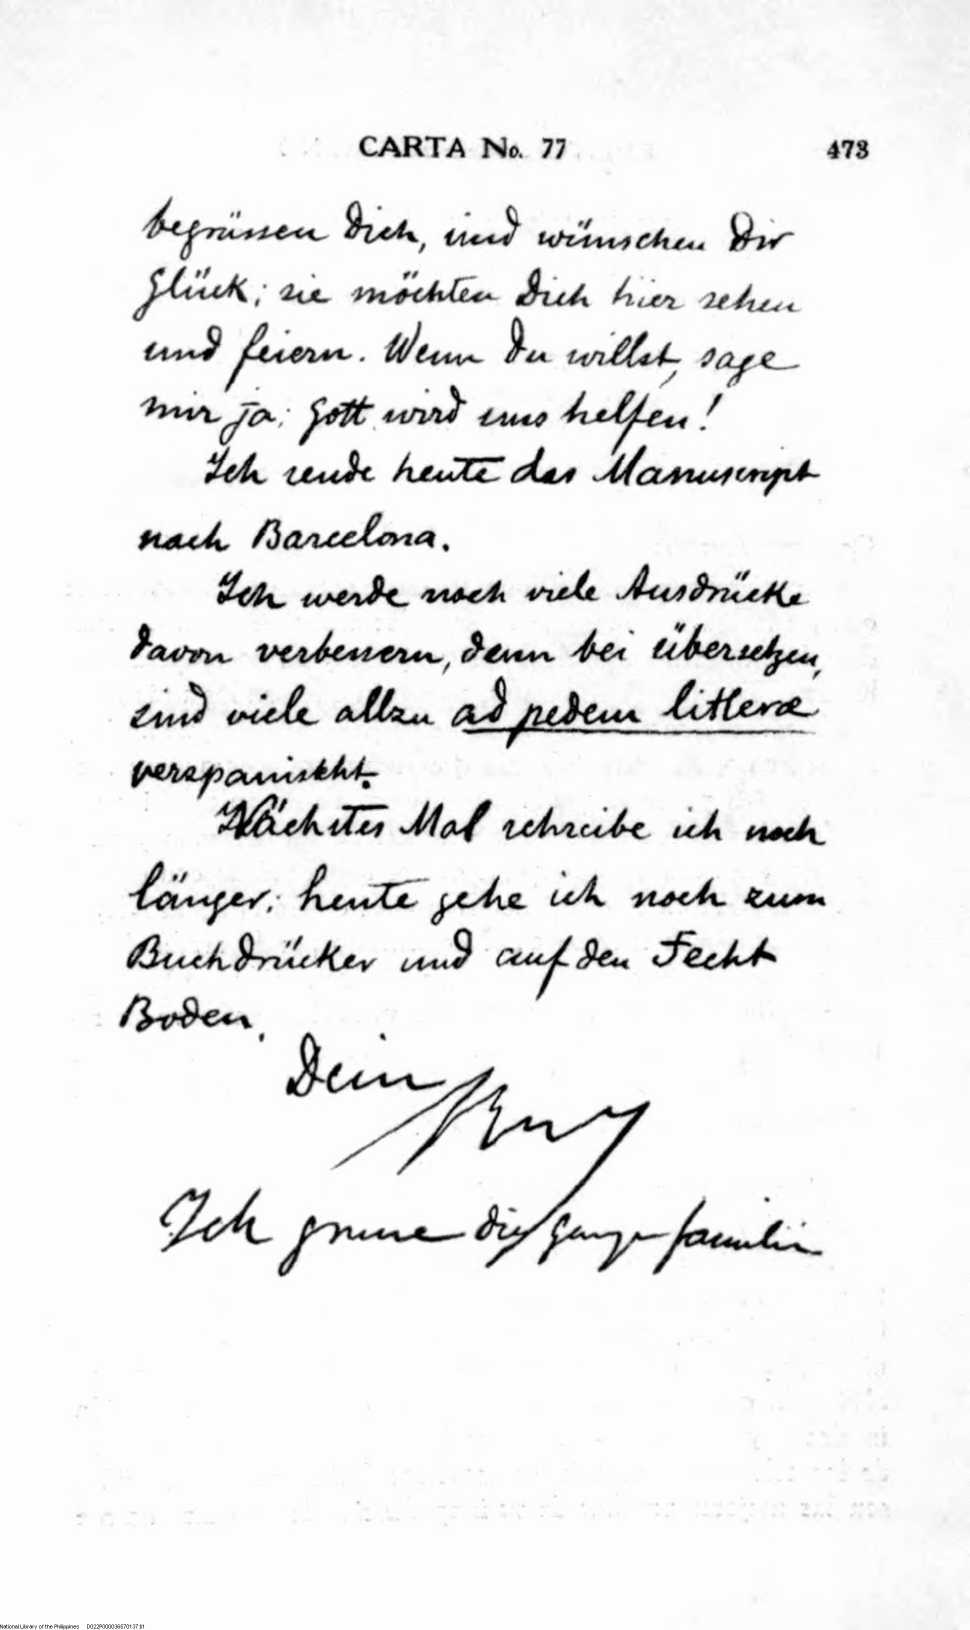 CARTA No. 77 473
begrüssen Dich, und wünschen Dir
Glück; sie möchten Dich hier sehen
und feiern. Wenn Du willst, sage
mir ja; Gott wird uns helfen!
Ich sende heute das Manuscript
nach Barcelona.
Ich werde noch viele Ausdrücke
davon verbessern, denn bei Übersetzen,
sind viele allzu ad pedem litterae
verspanischt.
Nächstes Mal schreibe ich noch
länger; heute gehe ich noch zum
Buchdrücker und auf den Fecht
Boden.
Dein
Ich grüsse die ganze familie
National Library of the Philippines